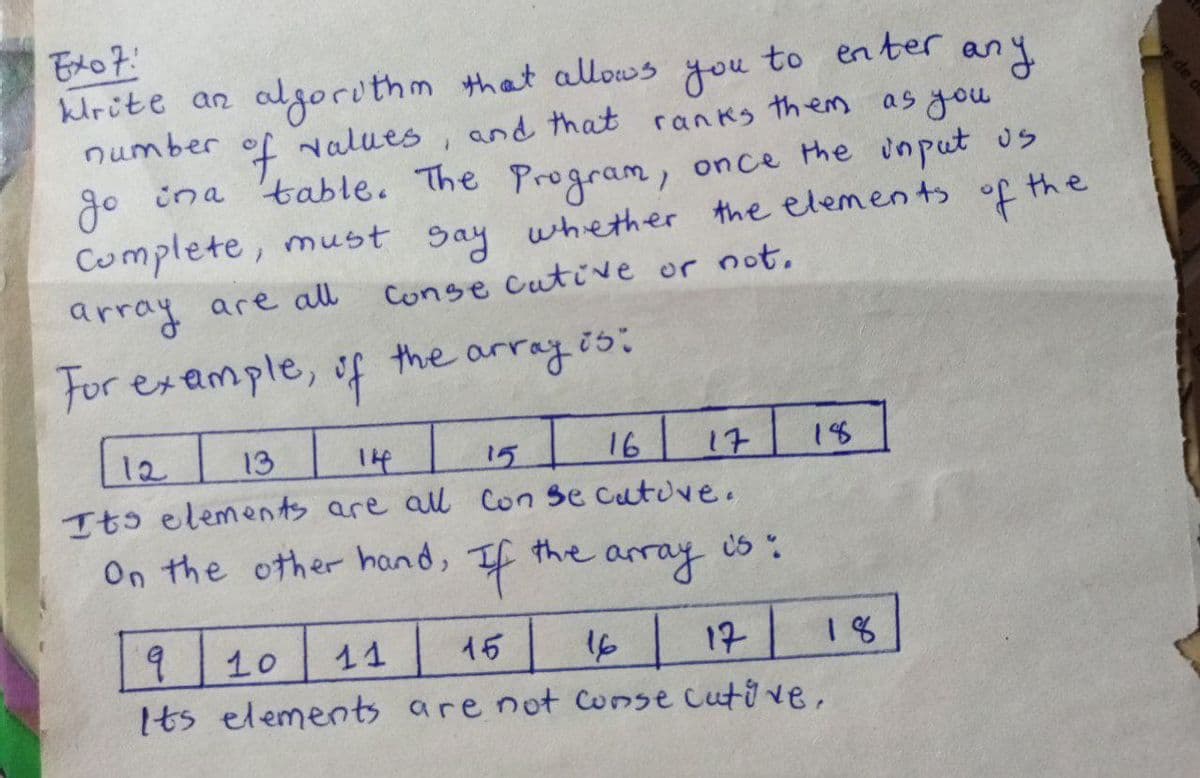 Exo7:
Write an algorithm that allows you to enter any
number of values, and that ranks them as you
go in a table. The Program, once the input is
Complete, must say whether the elements of the
array are all Consecutive or not.
For example, if the array is:
12 13 14 15 16 17 18
Its elements are all Consecutive.
On the other hand, If the array is:
9 10 11 15 16 17 18
Its elements are not Consecutive.